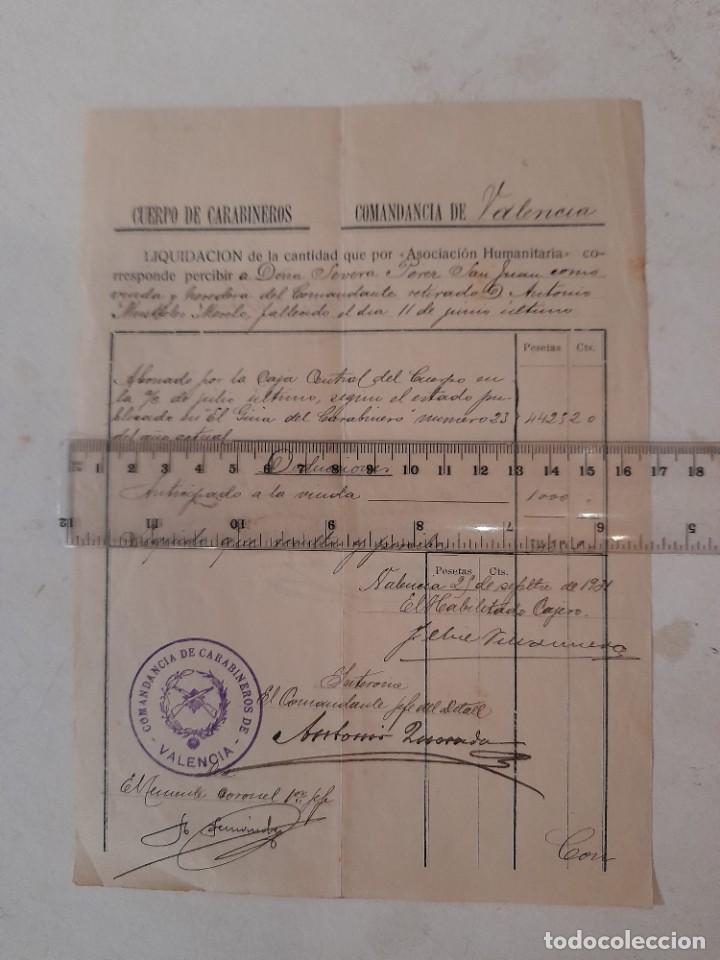 CUERPO DE CARABINEROS COMANDANCIA DE Valencia
LIQUIDACION de la cantidad que por «Asociación Humanitaria» co-
rresponde percibir a Dona Severa Perez San Juan como
viuda y heredera del Comandante retirado D Antonio
Morelo, fallecido el dia 11 de junio ultimo
Pesetas Cts.
Abonado por la Caja Central del Cuerpo en
la % de julio ultimo, segun el estado pu-
blicado en "El Guia del Carabinero" numero 23 4425 20
del año actual
Deducciones
1 2 3 4 5 6 7 8 9 10 11 12 13 14 15 16 17 18
Anticipado a la viuda 1000
12 11 10 9 8 7 6 5
Liquido que resulta y percibe
Pesetas Cts.
Valencia 25 de sepbre de 1931
El Habilitado Cajero.
Villanueva
COMANDANCIA DE CARABINEROS DE
- VALENCIA -
Intervine
El Comandante jefe del Detall
Antonio Quesada
El Teniente Coronel 1er jefe
Fernandez
Con
todocoleccion
todocoleccion.net